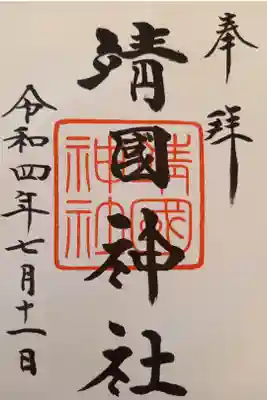 奉拝
靖國神社
靖國神社
令和四年七月十一日